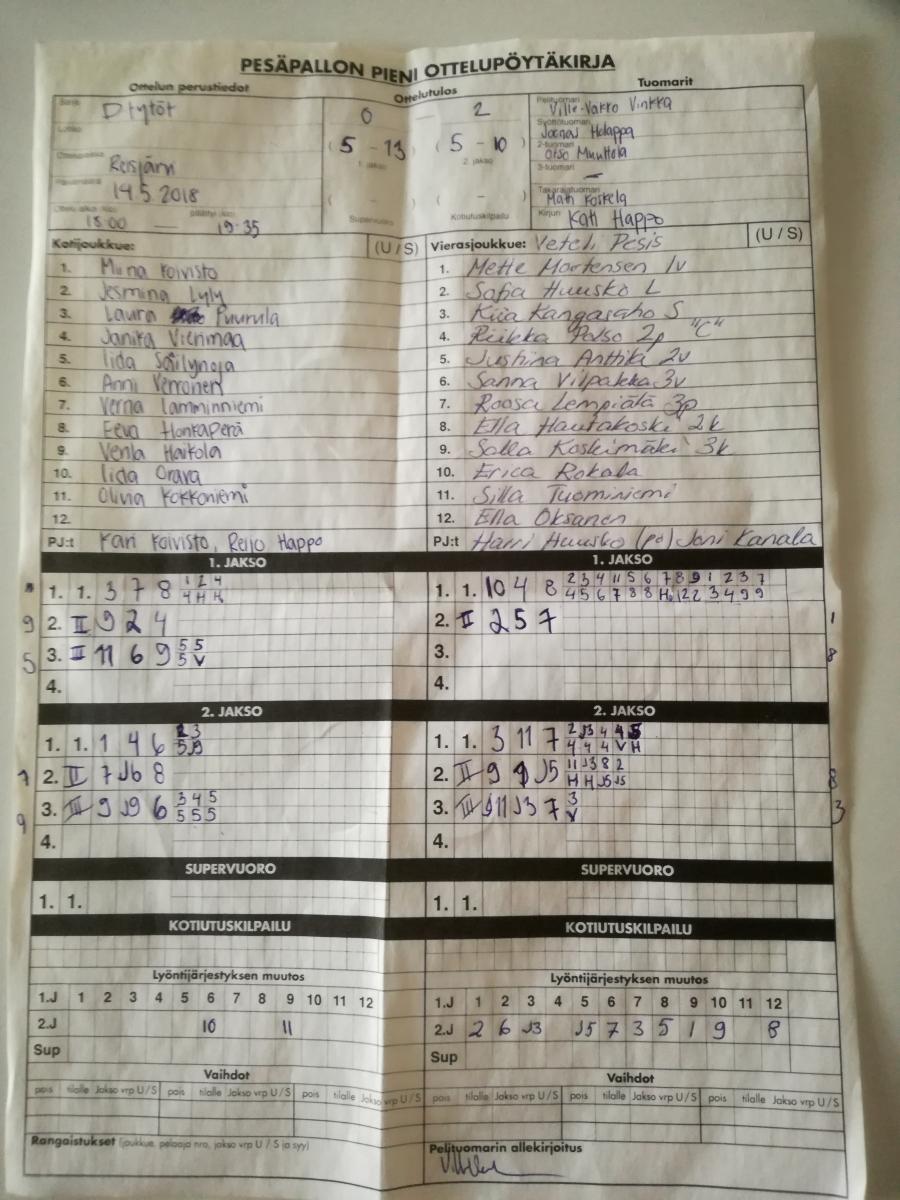 PESÄPALLON PIENI OTTELUPÖYTÄKIRJA
Ottelun perustiedot
Ottelutulos
Tuomarit
Sarja D tytöt
0 — 2
Pelituomari Ville-Vakko Vinkka
Lohko
(5 - 13) (5 - 10)
1. jakso 2. jakso
Syöttötuomari Joonas Holappa
2-tuomari Otso Muuttola
Ottelupaikka Reisjärvi
3-tuomari —
Päivämäärä 14.5.2018
( - ) ( - )
Takarajatuomari Matti Koskela
Ottelu alkoi (klo) 18:00 — päättyi (klo) 19:35
Supervuoro Kotiutuskilpailu
Kirjuri Kati Happo
Kotijoukkue: (U / S)
Vierasjoukkue: Veteli Pesis (U / S)
1. Miina Koivisto
1. Mette Mortensen 1v
2. Jesmina Lyly
2. Sofia Huusko L
3. Laura Puurula
3. Kiia Kangasaho S
4. Janika Vierimaa
4. Riikka Polso 2p "C"
5. Iida
5. Anttila 2v
6. Anni Verronen
6. Sanna Vilpakka 3v
7. Verna Lamminniemi
7. Roosa Lempiälä 3p
8. Eeva Honkaperä
8. Ella Hautakoski 2k
9. Venla Haikola
9. Salla Koskimäki 3k
10. Iida Orava
10. Erica
11. Olivia Kokkoniemi
11. Silla Tuominiemi
12.
12. Ella Oksanen
PJ:t Kari Koivisto, Reijo Happo
PJ:t Harri Huusko (po) Joni Kanala
1. JAKSO 1. JAKSO
1. 1. 3 7 8 1 2 4
4 H H
1. 1. 10 4 8 2 3 4 11 5 6 7 8 9 1 2 3 7
9 2. II 9 2 4
2. II 2 5 7 1
5 3. II 11 6 9 5 5
5 V
3. 8
4.
4.
2. JAKSO 2. JAKSO
1. 1. 1 4 6 2 3
5 J9
1. 1. 3 11 7 2 J3 4 4 5
4 4 4 V H
7 2. II 7 J6 8
2. II 9 1 J5 11 J3 8 2 8
H H J5 J5
9 3. III 9 J9 6 3 4 5
5 5 5
3. III J11 J3 7 3 3
V
4.
4.
SUPERVUORO SUPERVUORO
1. 1.
1. 1.
KOTIUTUSKILPAILU KOTIUTUSKILPAILU
Lyöntijärjestyksen muutos
Lyöntijärjestyksen muutos
1.J 1 2 3 4 5 6 7 8 9 10 11 12
1.J 1 2 3 4 5 6 7 8 9 10 11 12
2.J 10 11
2.J 2 6 J3 J5 7 3 5 1 9 8
Sup
Sup
Vaihdot
Vaihdot
pois tilalle Jakso vrp U / S pois tilalle Jakso vrp U / S pois tilalle Jakso vrp U / S
pois tilalle Jakso vrp U / S pois tilalle Jakso vrp U / S pois tilalle Jakso vrp U / S
Rangaistukset (joukkue, pelaaja nro, jakso vrp U / S ja syy)
Pelituomarin allekirjoitus